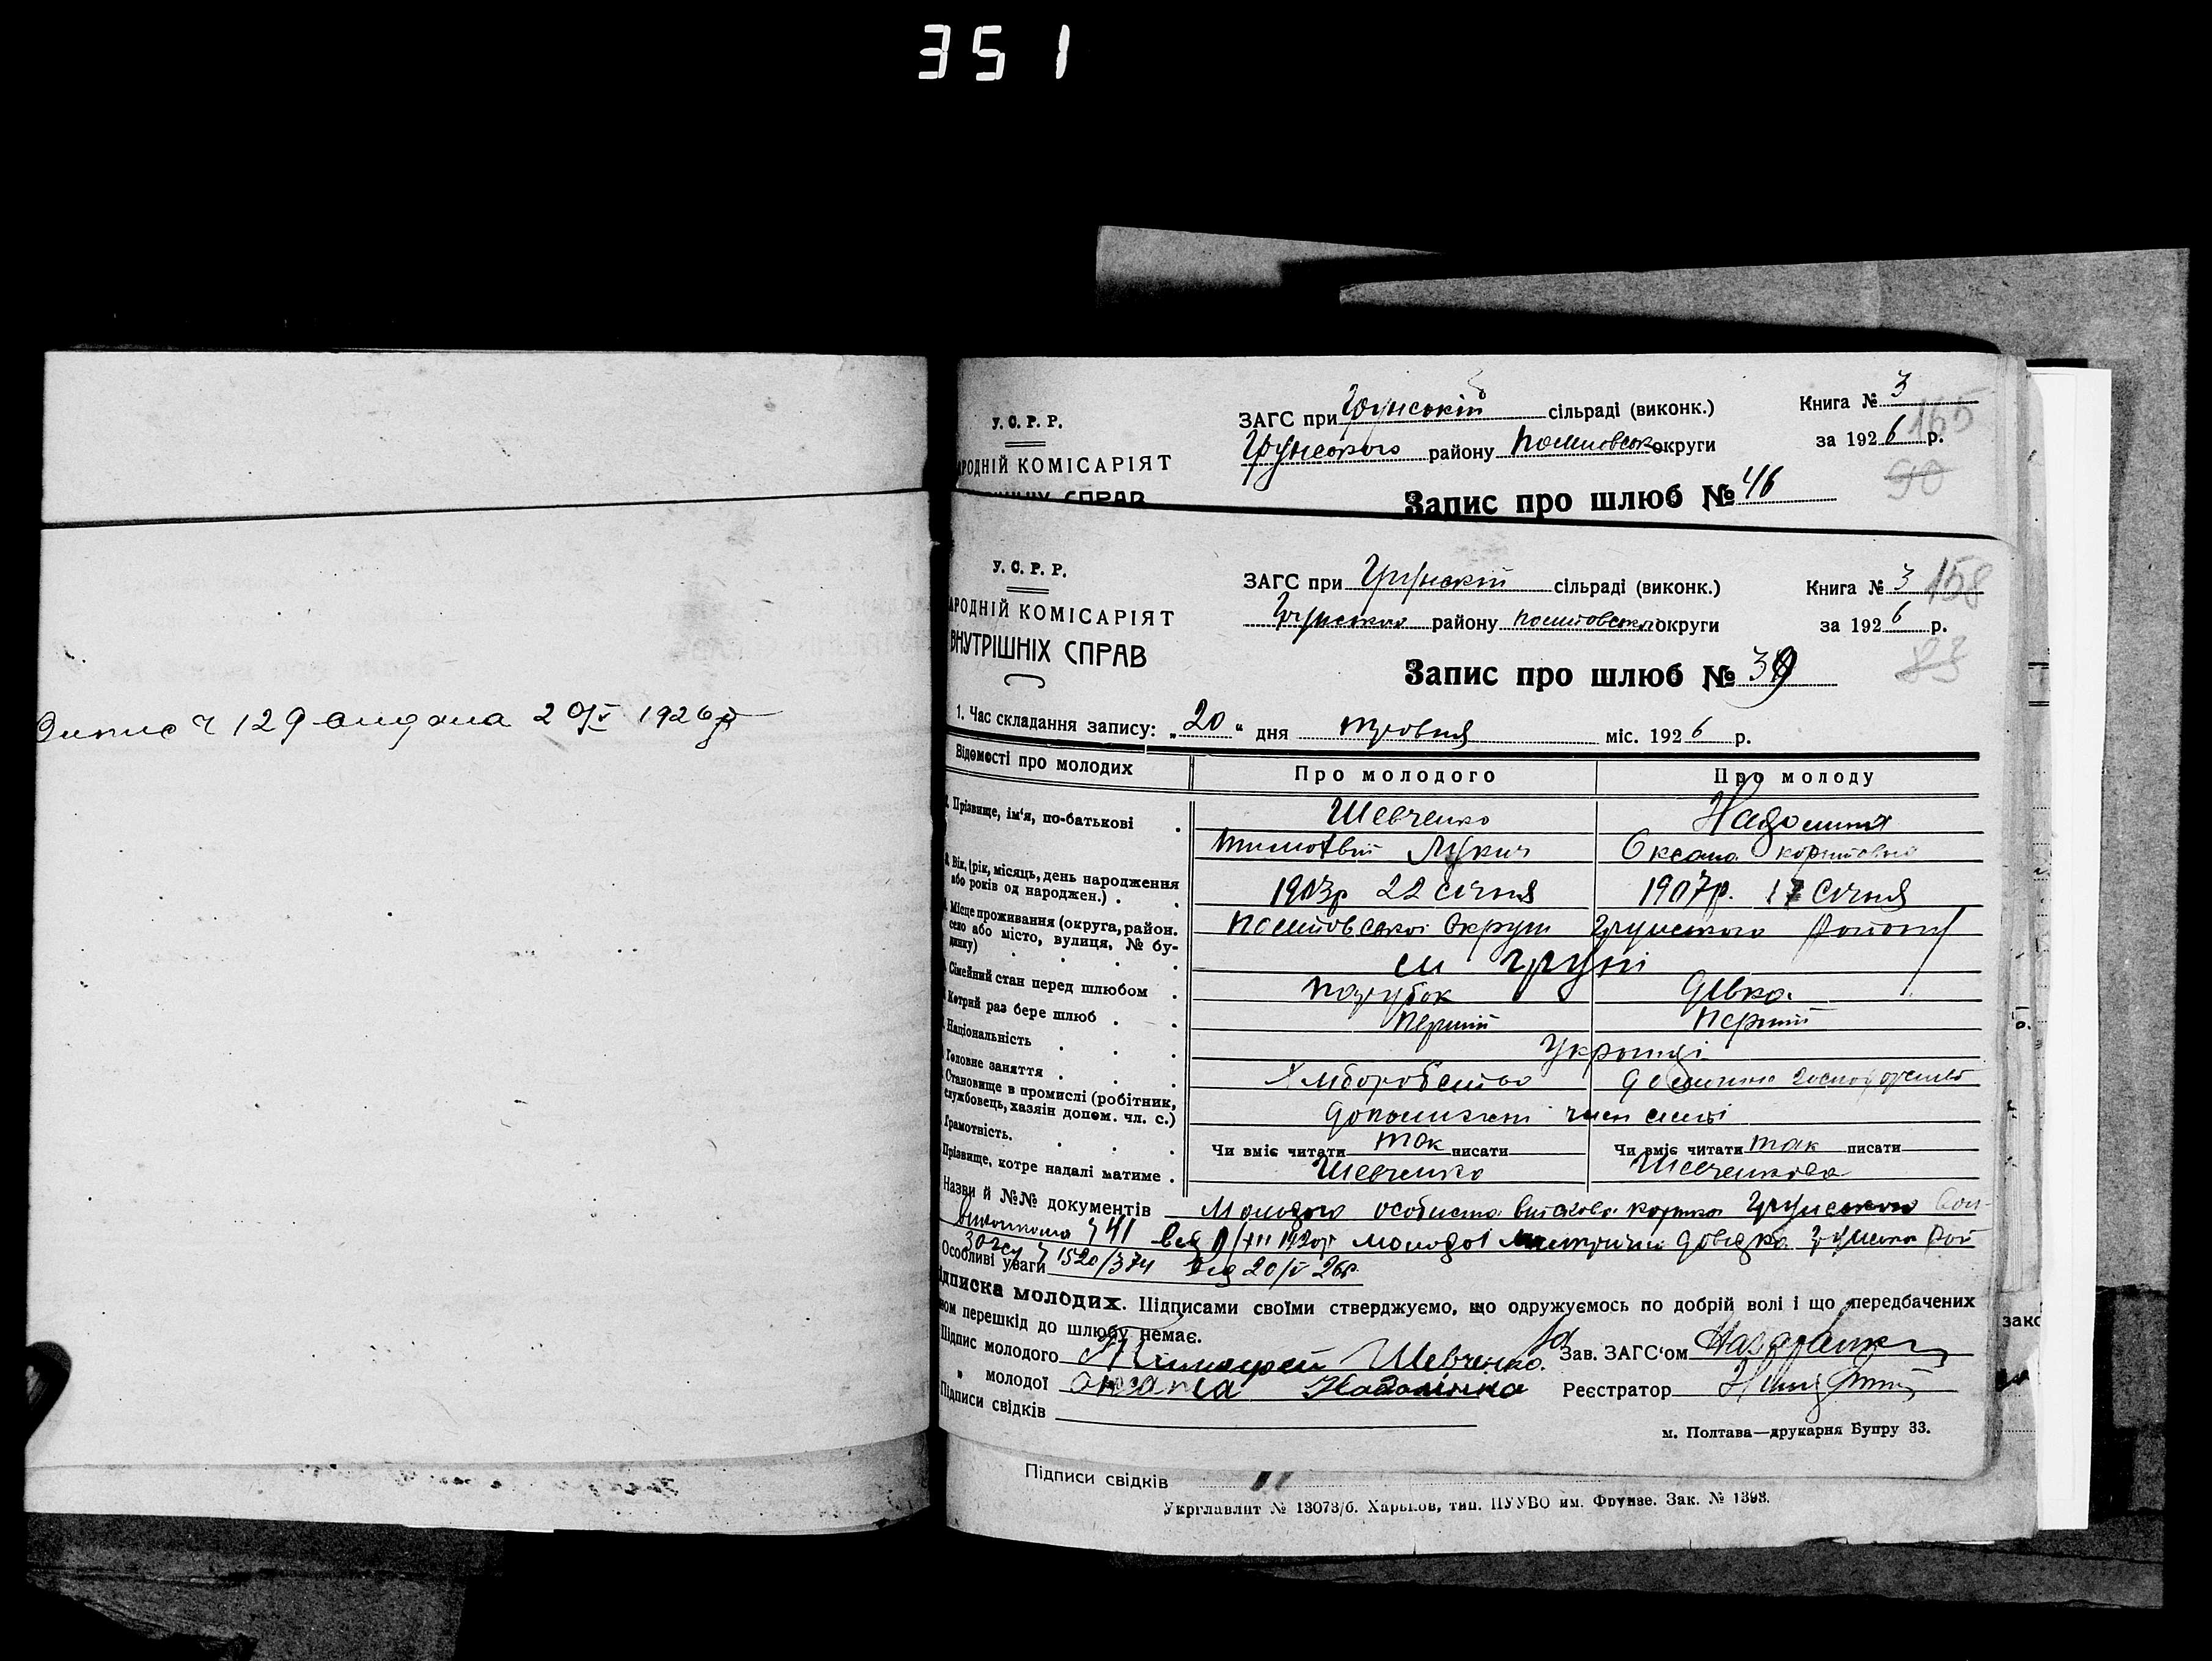 351
У. С. Р. Р.
РОДНІЙ КОМІСАРІЯТ
ЗАГС при Грунській сільраді (виконк.)
Грунського району Полтавськ округи
Книга № 3
за 1926 р.
165
90
Запис про шлюб № 46
Випис ч 129 видана 20/V 1926р
У. С. Р. Р.
АРОДНІЙ КОМІСАРІЯТ
ВНУТРІШНІХ СПРАВ
ЗАГС при Грунскій сільраді (виконк.)
Грунського району Полтавської округи
Книга № 3
158
за 1926 р.
83
Запис про шлюб № 39
1. Час складання запису: „20“ дня травня міс. 1926 р.
Відомості про молодих Про молодого Про молоду
Прізвище, ім'я, по-батькові Шевченко
Тимофвій Лукич Оксана
Вік, (рік, місяць, день народження або років од народжен.) 1903р 22 січня 1907р. 17 січня
Місце проживання (округа, район. село або місто, вулиця, № будинку) Полтавської округи Грунського району
см Груні
Сімейний стан перед шлюбом парубок дівка
Котрий раз бере шлюб перший перший
Національність Українці
Головне заняття Хліборобство домашнє господарство
Становище в промислі (робітник, службовець, хазяін допом. чл. с.) допомагає член сімьі
Грамотність. Чи вміє читати так писати Чи вміє читати так писати
Прізвище, котре надалі матиме Шевченко Шевченкова
Назви й №№ документів Молодого особиста війскова картка Грунського
ч 41 від /XII 192 р молодої метрична довідка Грунськ Рай
загсу ч 1520/374 від 20/V 26р.
Особливі уваги
ідписка молодих. Підписами своїми стверджуємо, що одружуємось по добрій волі і що передбачених
ном перешкід до шлюбу немає.
Підпис молодого Тимофей Шевченко. За Зав. ЗАГС'ом
„ молодої Реєстратор
Підписи свідків
м. Полтава—друкарня Бупру 33.
Підписи свідків
Укрглавлит № 13073/б. Харьков, тип. ПУУВО им. Фрунзе. Зак. № 1393.